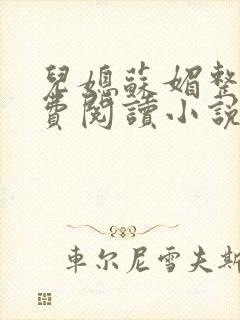 兒媳蘇媚整
費閱讀小說
車尔尼雪夫斯